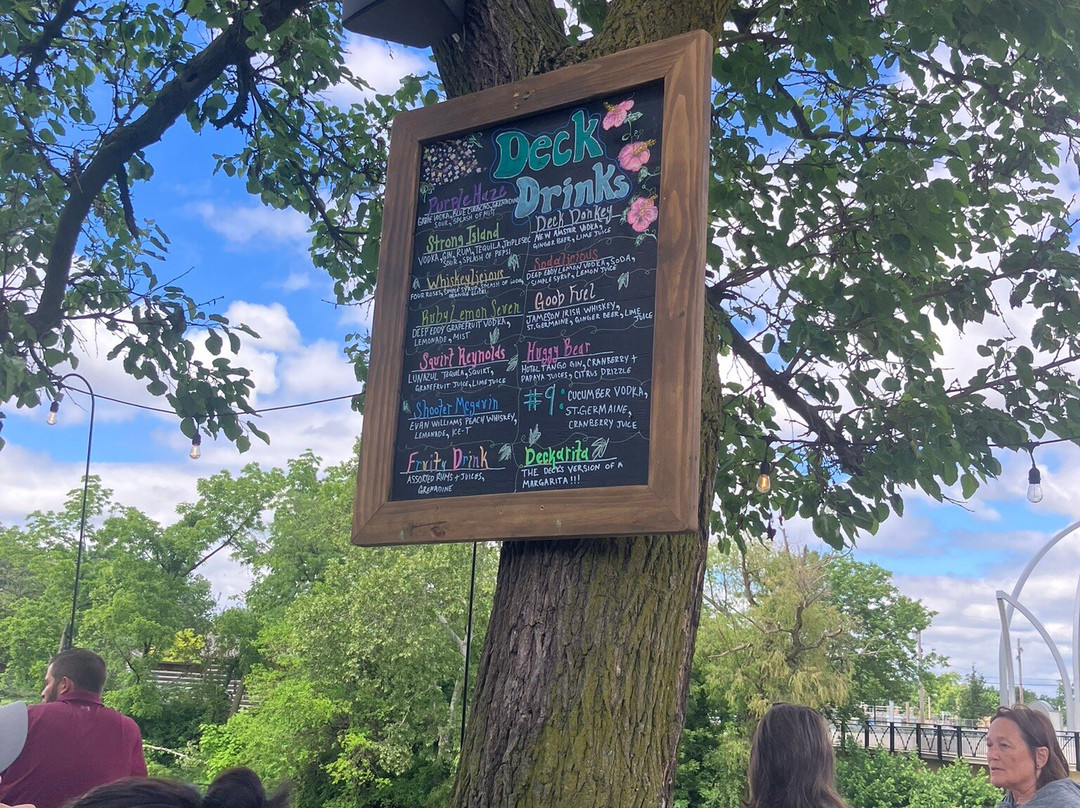 Deck
Drinks
Purple Haze
GRAPE VODKA, BLUE CURACAO, GRENADINE
SOUR, SPLASH OF MIST
Strong Island
VODKA, GIN, RUM, TEQUILA, TRIPLESEC
SOUR, SPLASH OF PEPSI
Whiskeylicious
FOUR ROSES, SIMPLE SYRUP, SPLASH OF
Ruby Lemon Seven
DEEP EDDY GRAPEFRUIT VODKA,
LEMONADE, MIST
Squirt Reynolds
LUNAZUL TEQUILA, SQUIRT,
GRAPEFRUIT JUICE, LIME JUICE
Shooter Mcgavin
EVAN WILLIAMS PEACH WHISKEY,
LEMONADE, ICE-T
Fruity Drink
ASSORTED RUMS + JUICES,
GRENADINE
Deck Donkey
NEW AMSTER VODKA,
GINGER BEER, LIME JUICE
Sodalicious
DEEP EDDY LEMON VODKA, SODA,
SIMPLE SYRUP, LEMON JUICE
Goob Fuel
JAMESON IRISH WHISKEY,
ST. GERMAINE, GINGER BEER, LIME
JUICE
Huggy Bear
HOTEL TANGO GIN, CRANBERRY +
PAPAYA JUICES, CITRUS DRIZZLE
#9: CUCUMBER VODKA,
ST. GERMAINE,
CRANBERRY JUICE
Deckarita
THE DECKS VERSION OF A
MARGARITA!!!